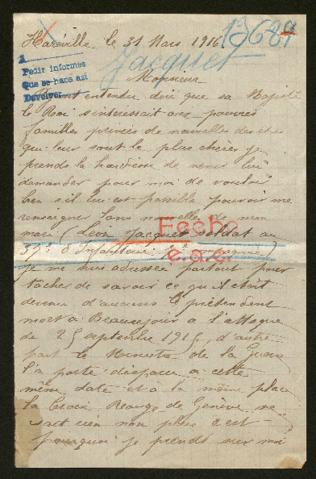 Haréville, le 31 Mars 1916
13684
Jacquet
1
Pedir informes
Que se hace así
Devolver
Monsieur
entendu dire que sa Majesté
le Roi s'interessait aux pauvres
familles privées de nouvelles des êtres
qui leur sont le plus chers je
prends la hardiesse de venir lui
demander pour moi de vouloir
bien s'il lui est possible pouvoir me
renseigner sans nouvelle de mon
mari (Léon Jacquet soldat au
37e d'Infanterie
Fecho
e.a.c.
je me suis adressée partout pour
tacher de savoir ce qu'il était
devenu d'aucuns le prétendent
mort à Beausejour à l'attaque
du 25 septembre 1915, d'autre
part le Ministre de la guerre
l'a porté disparu à cette
même date et à la même place
la Croix Rouge de Genève ne
sait rien non plus c'est
pourquoi je prends sur moi